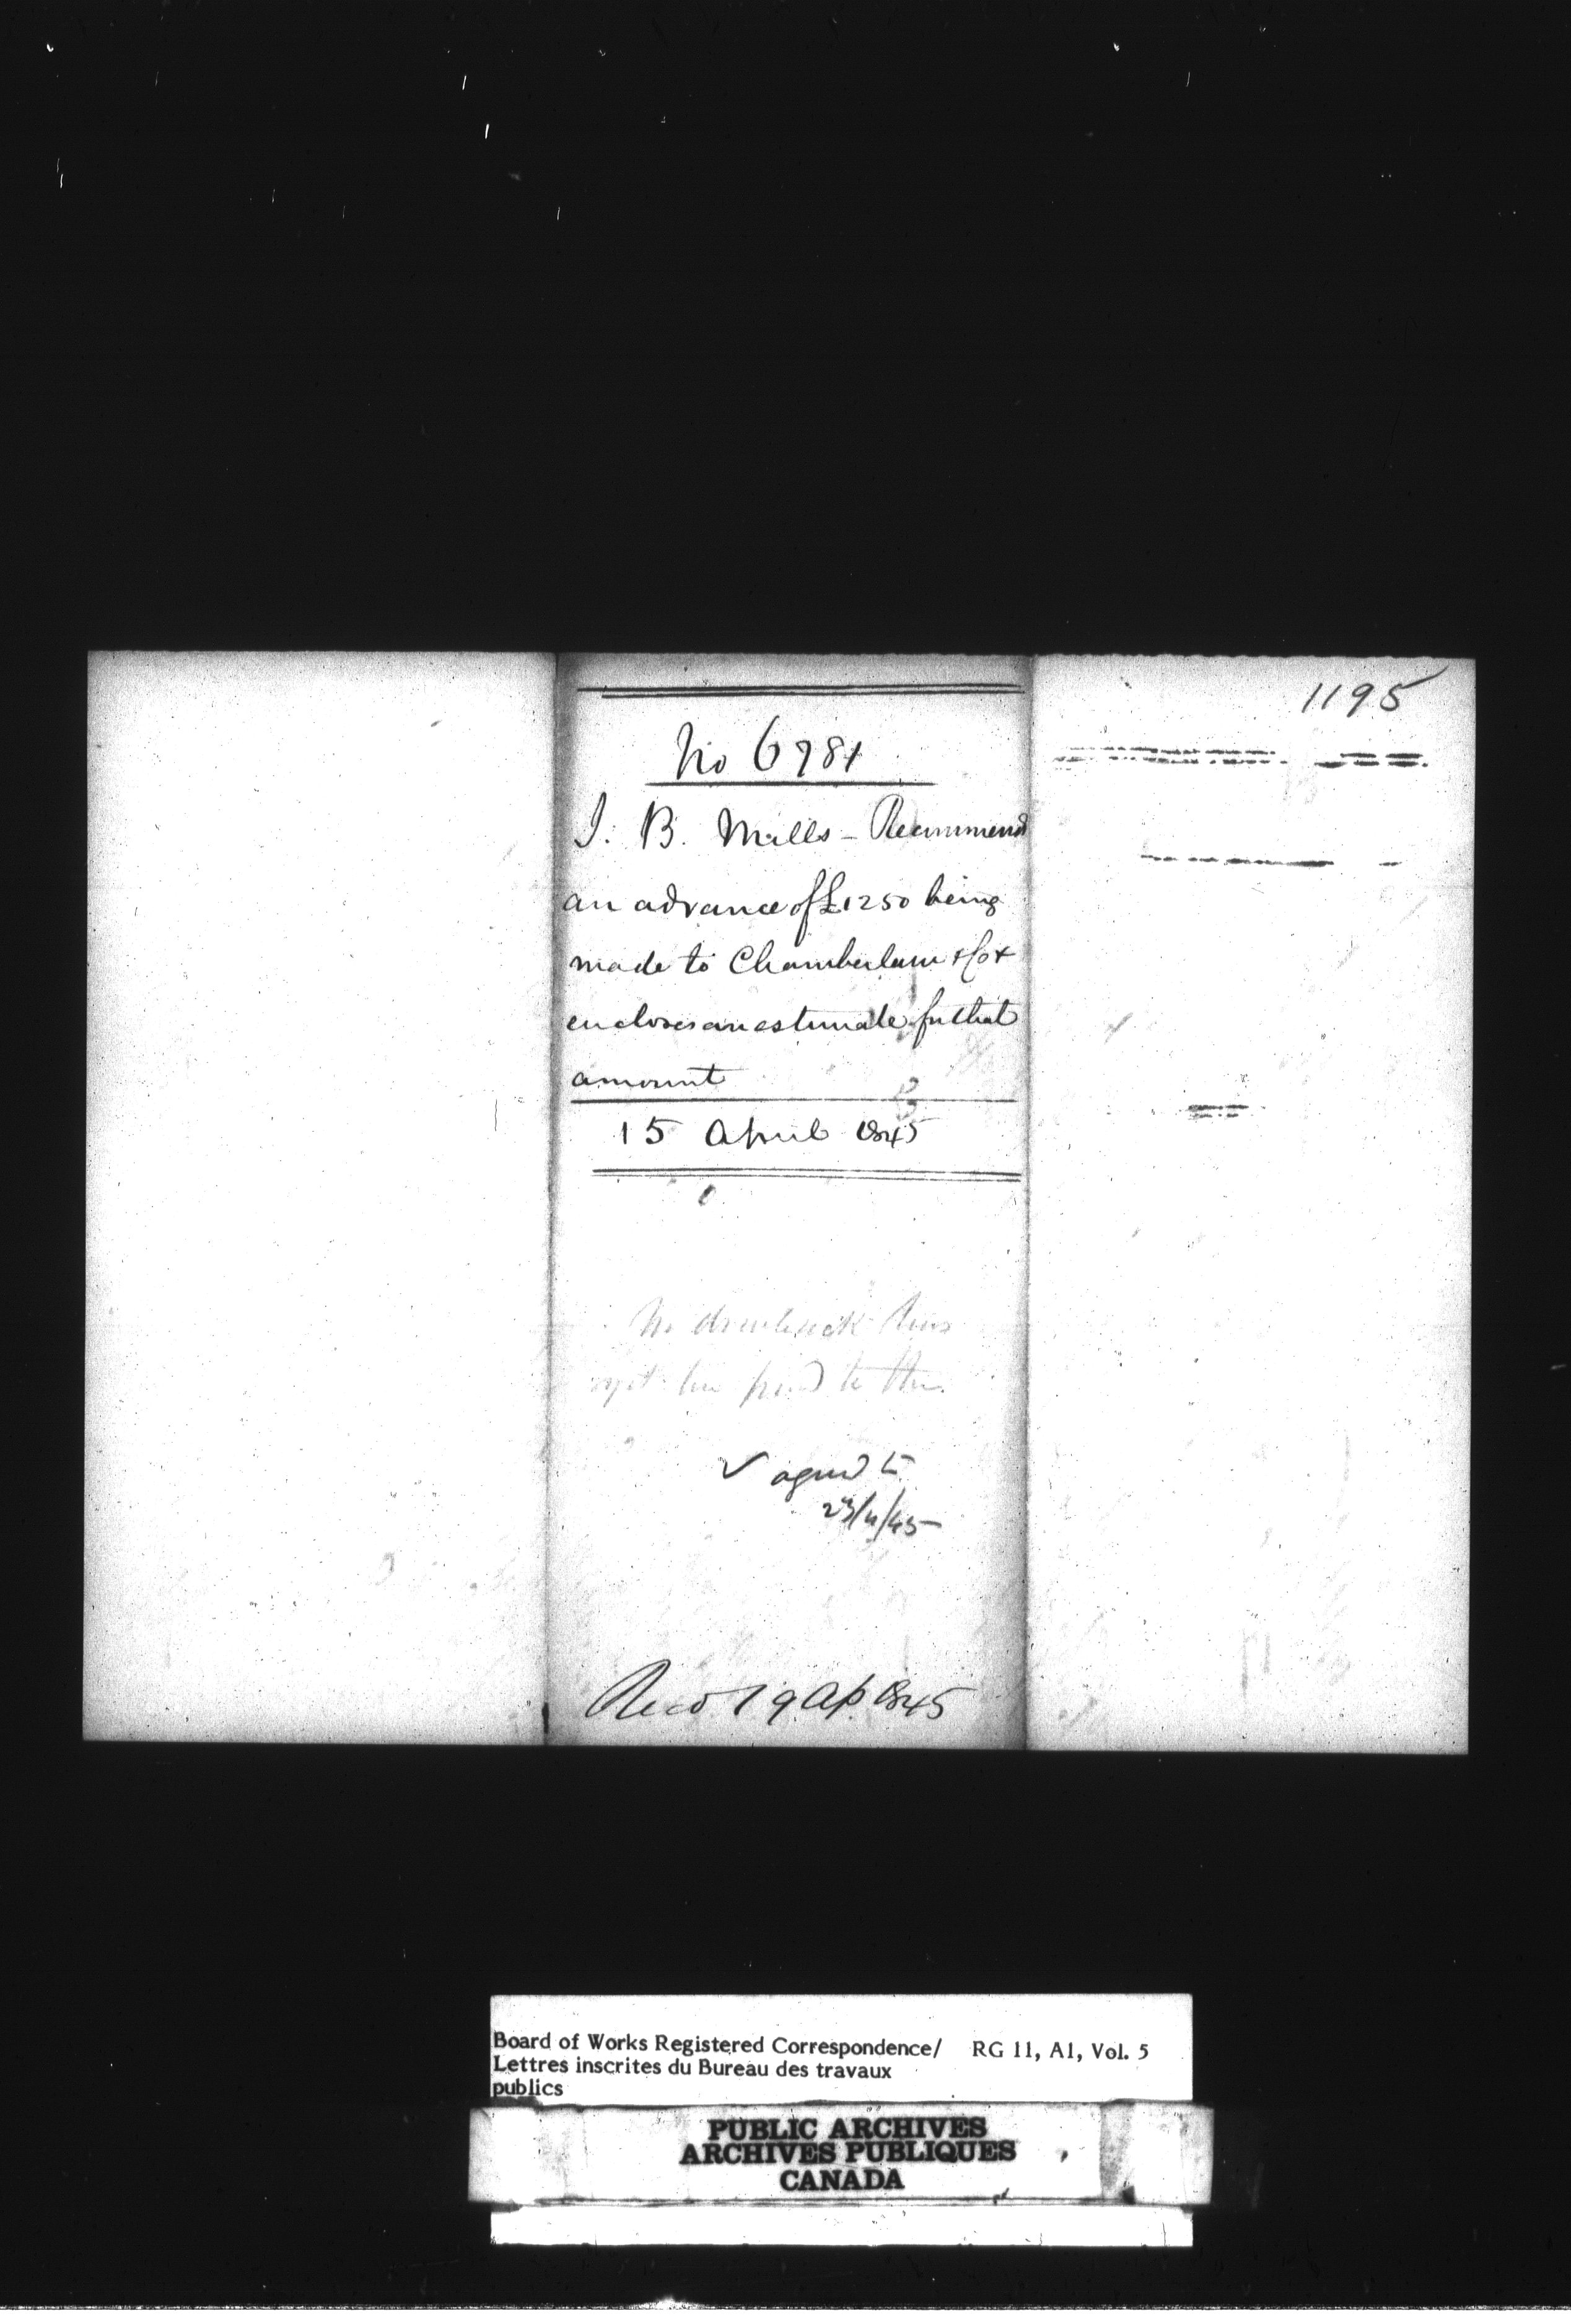 1195
No 6781
J. B. Mills - Recommend
an advance of £1250 being
made to Chamberlain & Co &
encloses an estimate for that
amount
15 April 1845
No drawback has
yet been paid to them.
✓ agreed to
23/4/45
Recd 19 Ap. 1845
Board of Works Registered Correspondence/ RG 11, A1, Vol. 5
Lettres inscrites du Bureau des travaux
publics
PUBLIC ARCHIVES
ARCHIVES PUBLIQUES
CANADA